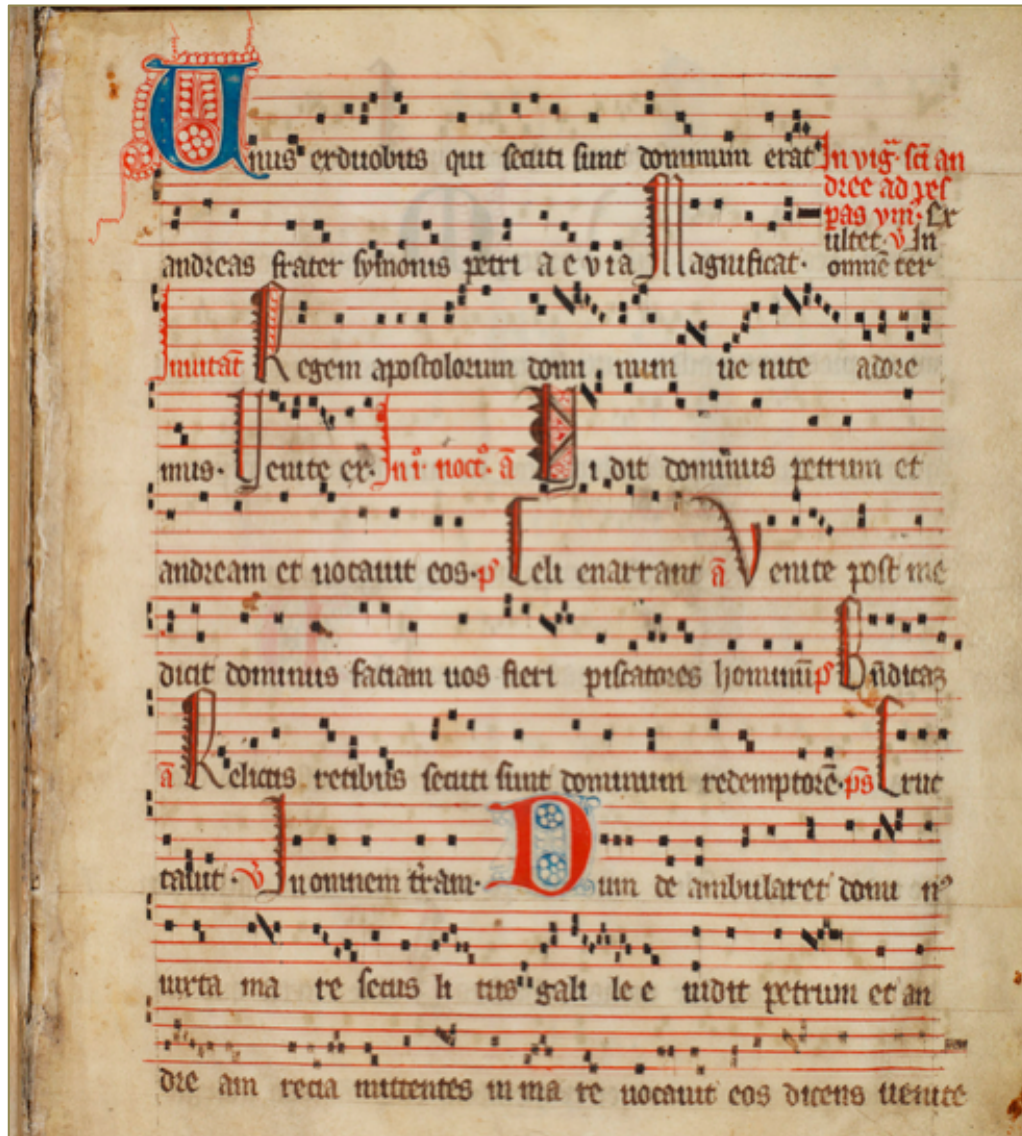 Unus exduobus qui secuti sunt dominum erat In vigͣ· sc̄i an
dree ad ves
pas ym̄· Ex
ultet· v̄ In
andreas frater symonis petri a e v i a Magnificat· omnē ter
Inuitat̄ Regem apostolorum domi num ue nite adore
mus· Uenite ex· In i· noct̊· ā Uidit dominus petrum et
andream et uocauit eos· p̄ Celi enarrant ā Venite post me
dicit dominus faciam uos fieri piscatores hominū p̄ Bn̄dicaꝫ
ā Relictis retibus secuti sunt dominum redemptorē· ps̄ Eruc
tauit· v̄ In omnem t̄ram· Dum de ambularet domi nꝰ
iuxta ma re secus li tus gali le e uidit petrum et an
dre am recia mittentes in ma re uocauit eos dicens uenite